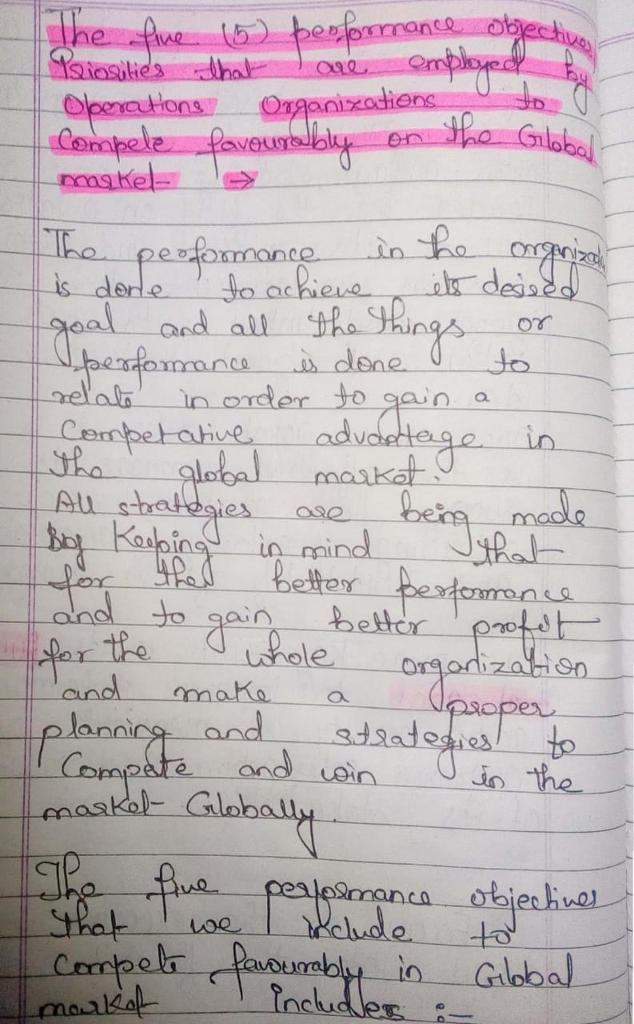 The five (5) performance objectives
Priorities that are employed by
Operations Organizations to
Compete favourably on the Global
market →
The performance in the organizati
is done to achieve its desired
goal and all the things or
performance is done to
relate in order to gain a
Competative advantage in
the global market.
All strategies are being made
by Keeping in mind that
for the better performance
and to gain better profit
for the whole organization
and make a proper
planning and strategies to
Compete and win in the
market Globally.
The five performance objectives
that we include to
Compete favourably in Global
market includes :-